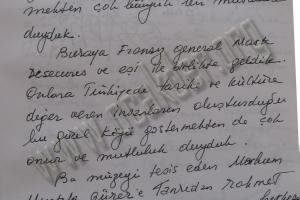 mekten çok büyük bir mutluluk
duyduk.
Buraya Fransız general Mark
ve eşi ile birlikte geldik.
Onlara Türkiyede tarihe ve kültüre
değer veren insanların oluşturduğu
bu güzel köyü göstermekten de çok
onur ve mutluluk duyduk.
Bu müzeyi tesis eden Merhum
Gürer'e Tanrıdan rahmet